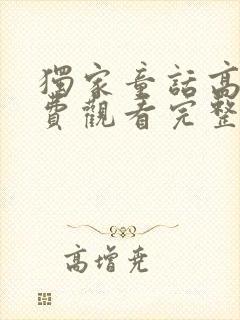 獨家童話高
費觀看完整
高增堯